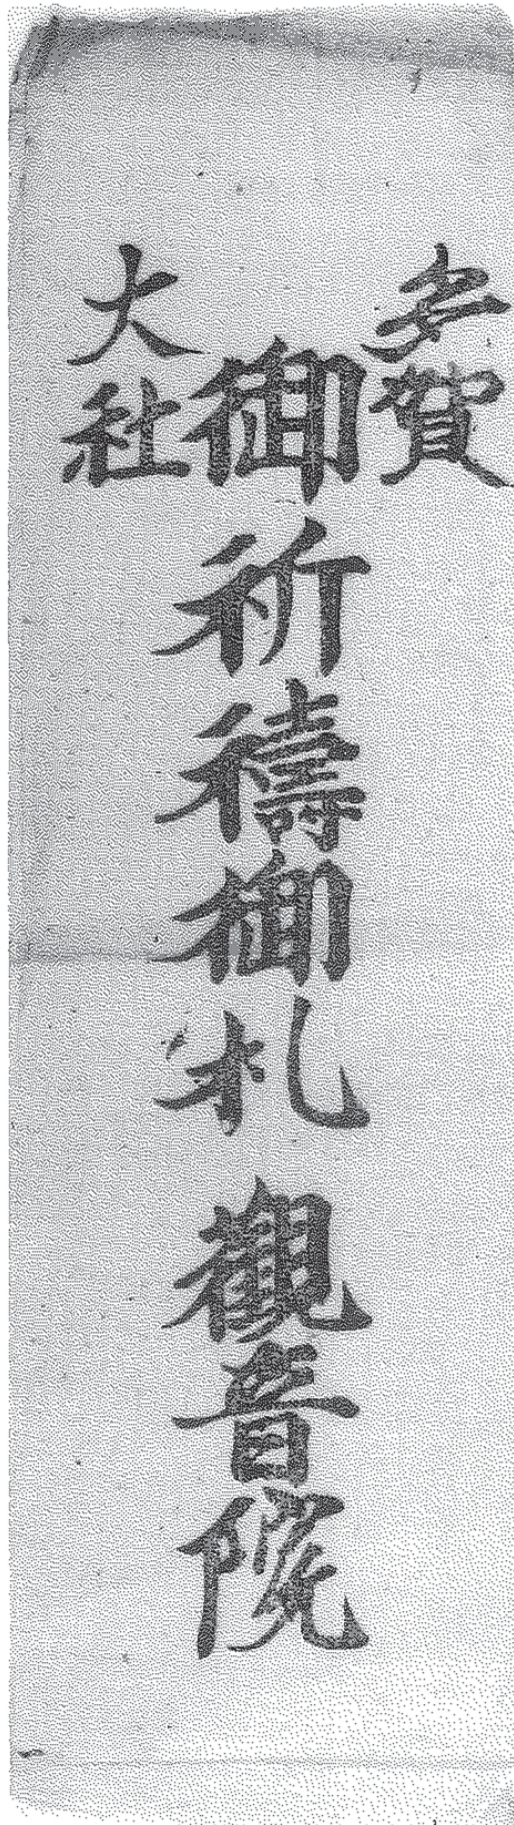 多賀
大社
御祈禱御札 觀音院